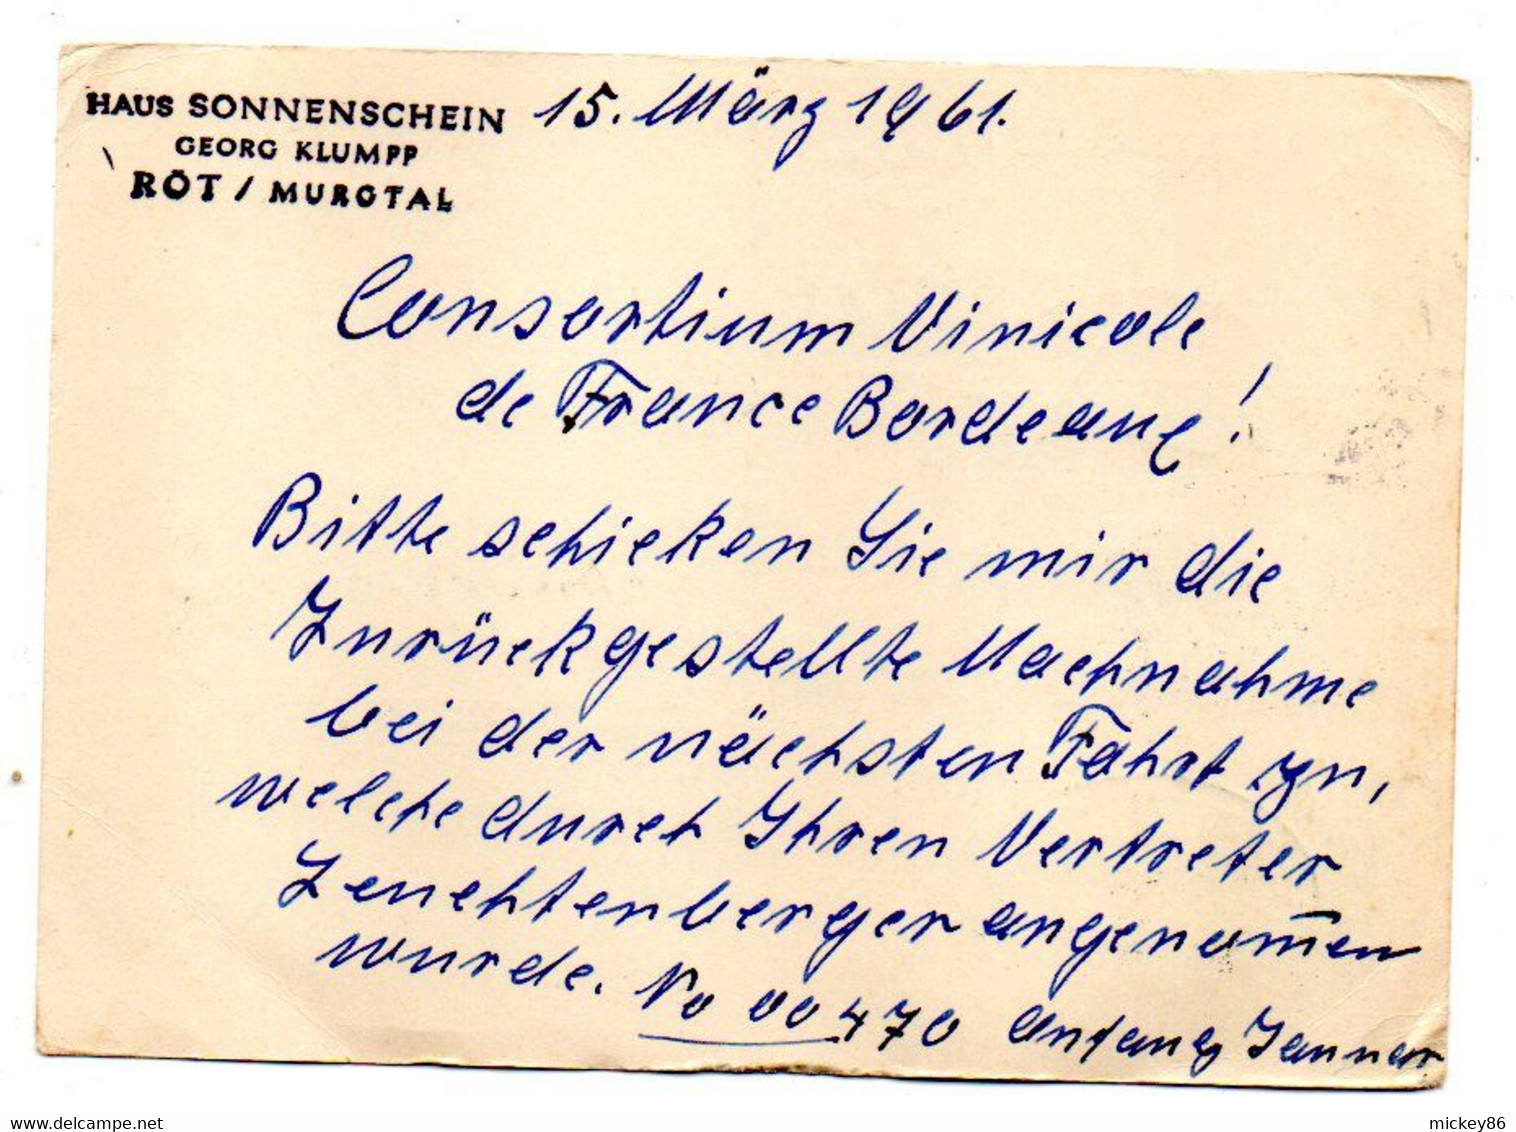 HAUS SONNENSCHEIN
GEORG KLUMPP
RÖT / MURGTAL
15. März 1961.
Consortium Vinicole
de France Bordeaux!
Bitte schicken Sie mir die
Zurückgestellte Nachnahme
bei der nächsten Fahrt zu,
welche durch Ihren Vertreter
Leuchtenberger angenom̅en
wurde. No 00470 anfang Januar
mickey86